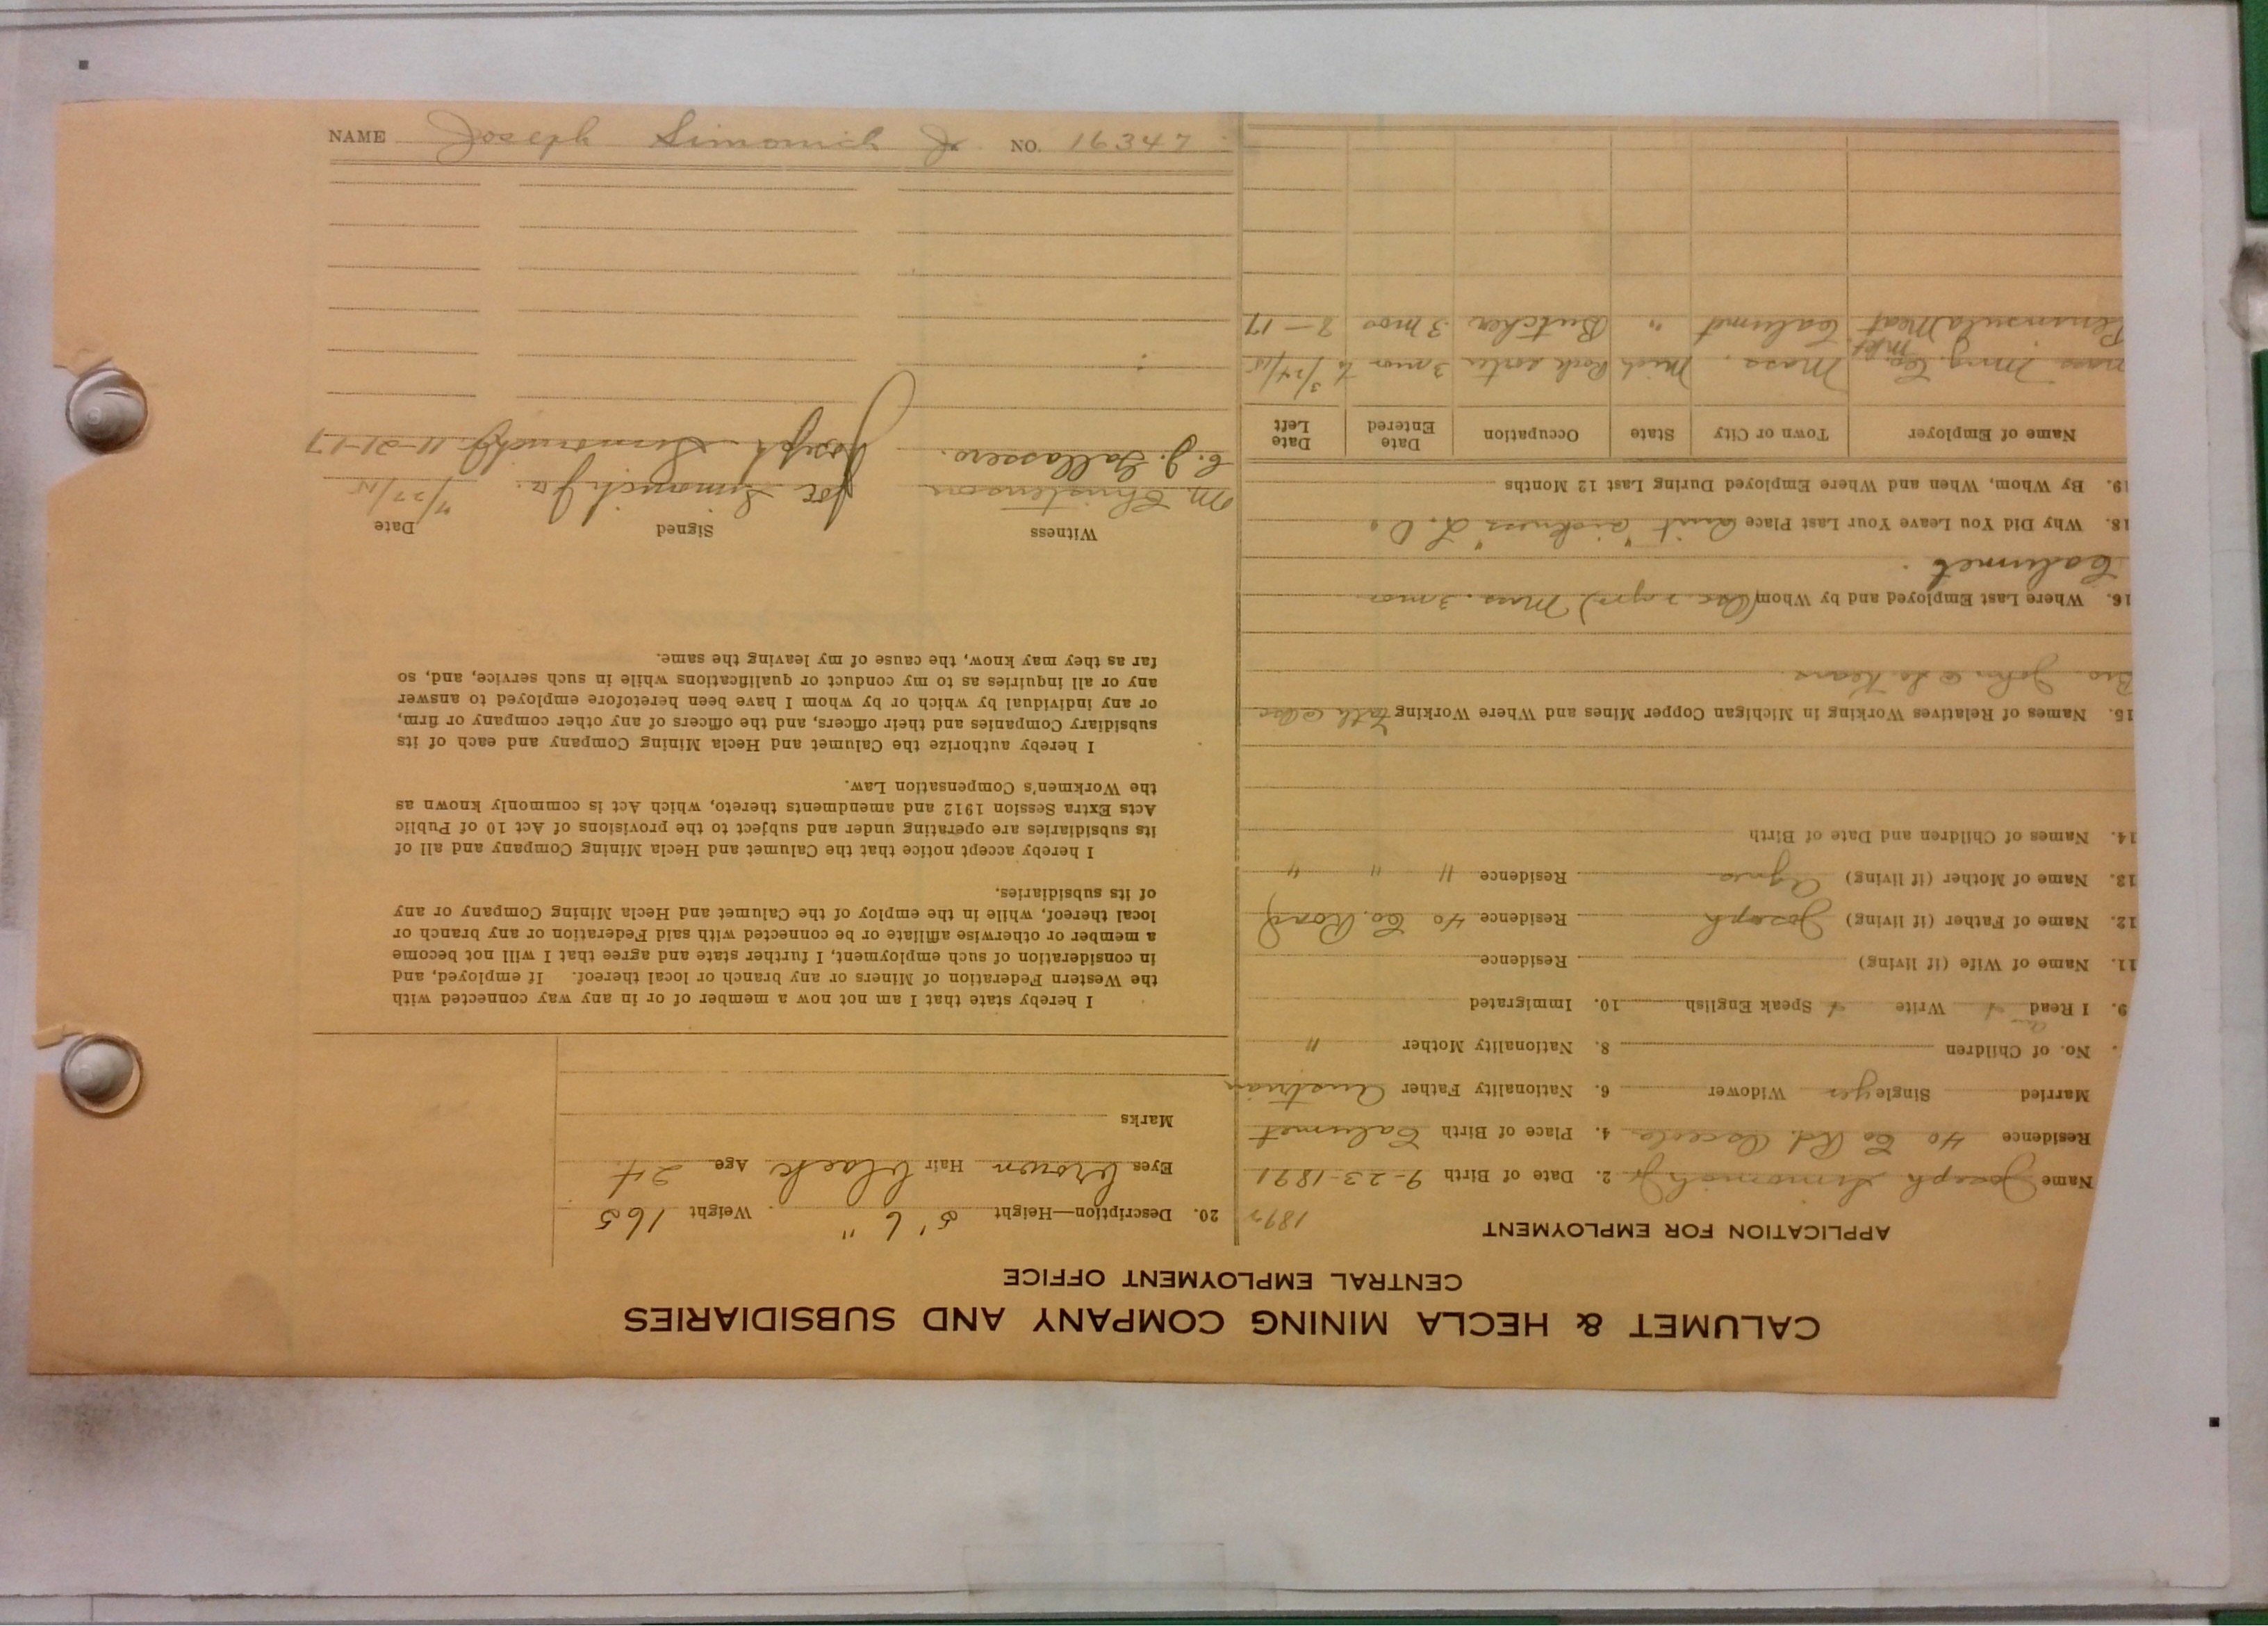 CALUMET & HECLA MINING COMPANY AND SUBSIDIARIES
CENTRAL EMPLOYMENT OFFICE
APPLICATION FOR EMPLOYMENT
Name Joseph Simonich Jr. 2. Date of Birth 9-23-1891
Residence 40 Co Rd. Osceola 4. Place of Birth Calumet
Married Single yes Widower 6. Nationality Father Austrian
No. of Children 8. Nationality Mother "
9. I Read Write Speak English 10. Immigrated
11. Name of Wife (if living) Residence
12. Name of Father (if living) Joseph Residence 40 Co. Road
13. Name of Mother (if living) Residence " " "
14. Names of Children and Date of Birth
15. Names of Relatives Working in Michigan Copper Mines and Where Working
Bro. John
16. Where Last Employed and by Whom Mass. 3 mos
Calumet.
18. Why Did You Leave Your Last Place Quit "sickness"
19. By Whom, When and Where Employed During Last 12 Months
Name of Employer Town or City State Occupation Date Entered Date Left
Mass Mng. Co. Mass. Mich 3 mos to 3/24/15
Peninsula Meat Mkt. Calumet " Butcher 3 mos 2-17
20. Description—Height 5' 6" Weight 165
Eyes brown Hair black Age 24
Marks
I hereby state that I am not now a member of or in any way connected with
the Western Federation of Miners or any branch or local thereof. If employed, and
in consideration of such employment, I further state and agree that I will not become
a member or otherwise affiliate or be connected with said Federation or any branch or
local thereof, while in the employ of the Calumet and Hecla Mining Company or any
of its subsidiaries.
I hereby accept notice that the Calumet and Hecla Mining Company and all of
its subsidiaries are operating under and subject to the provisions of Act 10 of Public
Acts Extra Session 1912 and amendments thereto, which Act is commonly known as
the Workmen's Compensation Law.
I hereby authorize the Calumet and Hecla Mining Company and each of its
subsidiary Companies and their officers, and the officers of any other company or firm,
or any individual by which or by whom I have been heretofore employed to answer
any or all inquiries as to my conduct or qualifications while in such service, and, so
far as they may know, the cause of my leaving the same.
Witness Signed Date
M. Christenson Joe Simonich Jr.
C. J. Gallassero. Joseph Simonich Jr. 11-21-17
NAME Joseph Simonich Jr. NO. 16347